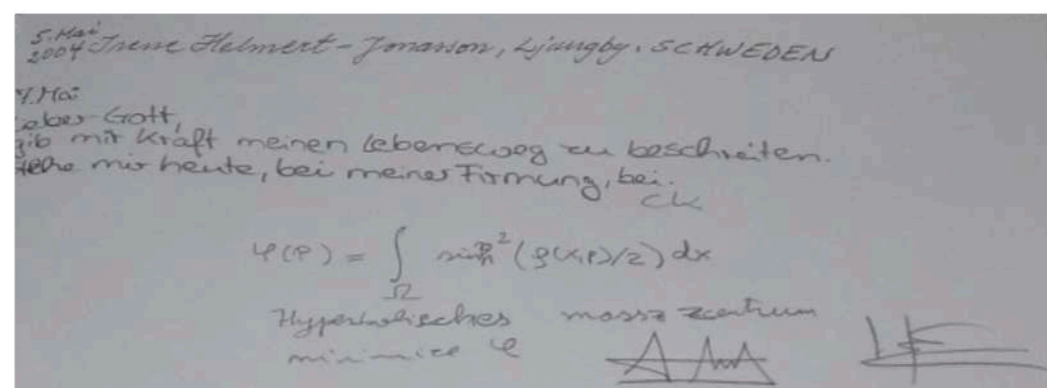 5. Mai
2004 Irene Helmert-Jonasson, Ljungby. SCHWEDEN
7. Mai
ieber Gott,
gib mir Kraft meinen Lebensweg zu beschreiten.
tehe mir heute, bei meiner Firmung, bei.
CK
φ(p) = ∫_Ω sinh² (ρ(x,p)/2) dx
Hyperbolisches massz zentrum
minimize φ